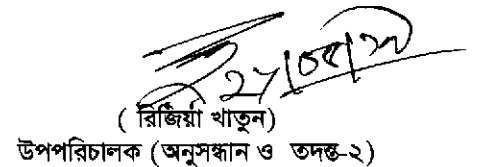 ( রিজিয়া খাতুন)
উপপরিচালক (অনুসন্ধান ও তদন্ত-২)